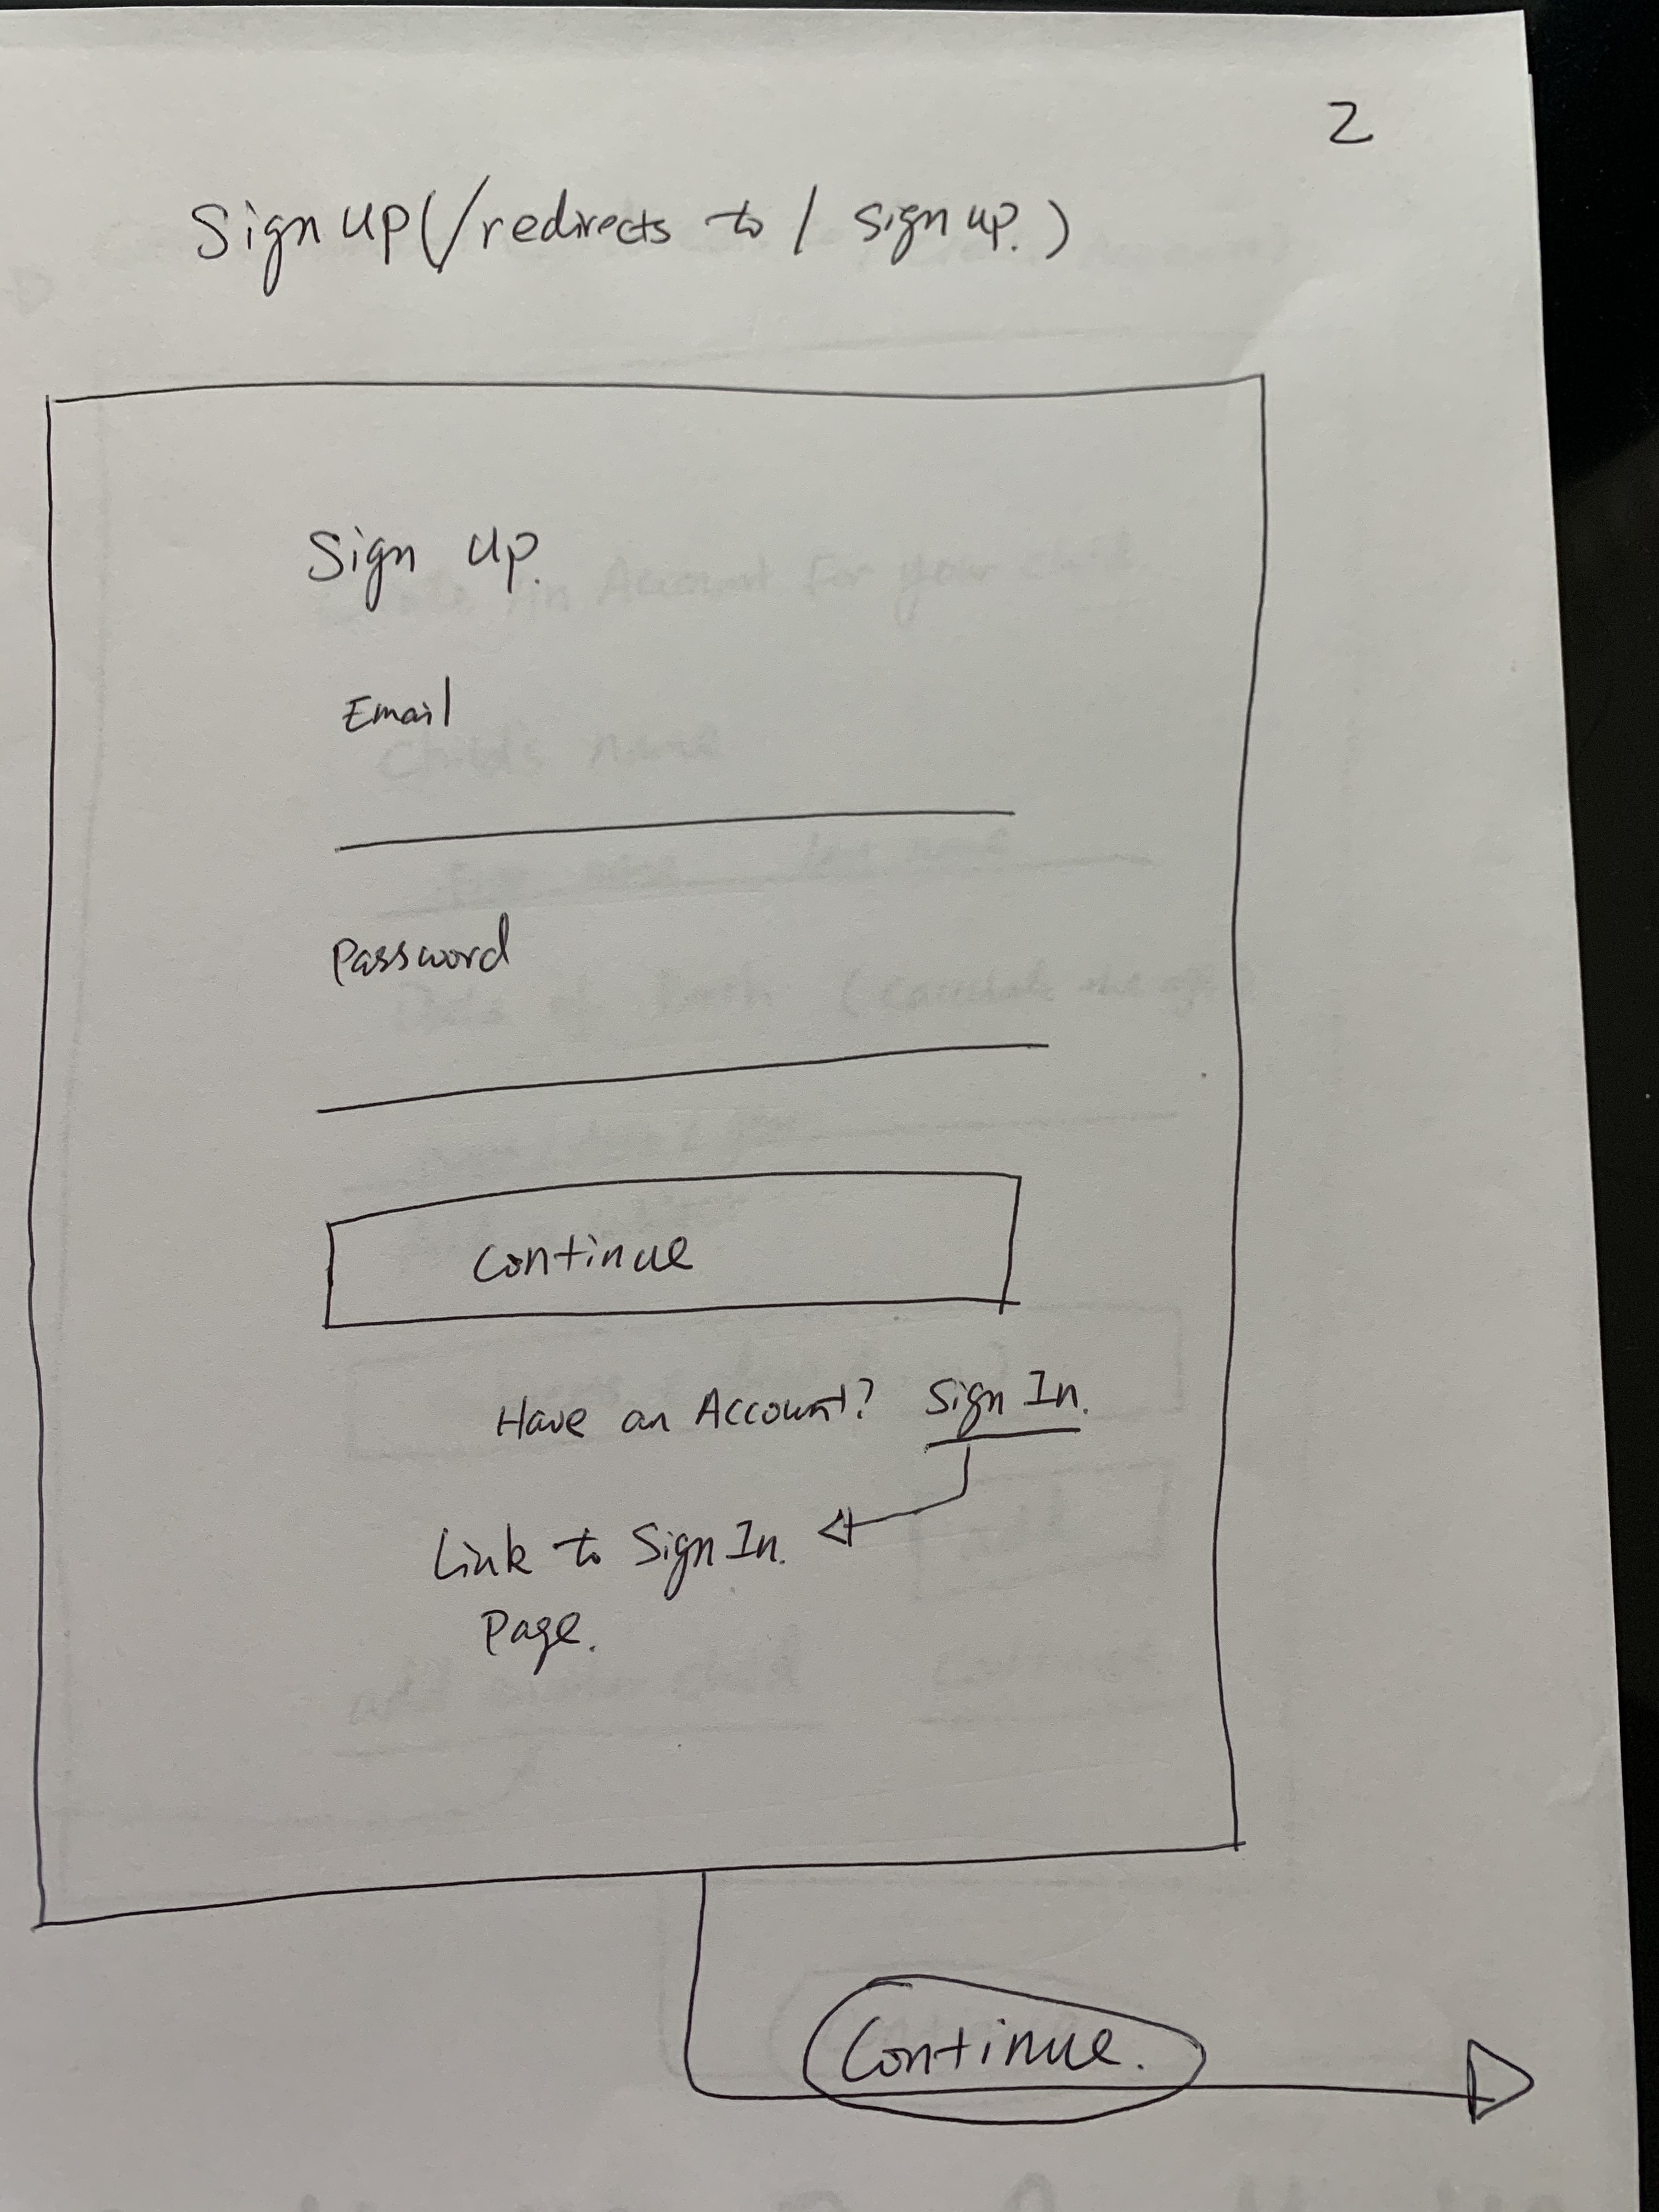 2
Sign up (/redirects to / sign up.)
Sign up.
Email
Password
Continue
Have an Account? Sign In.
Link to Sign In.
Page.
Continue.